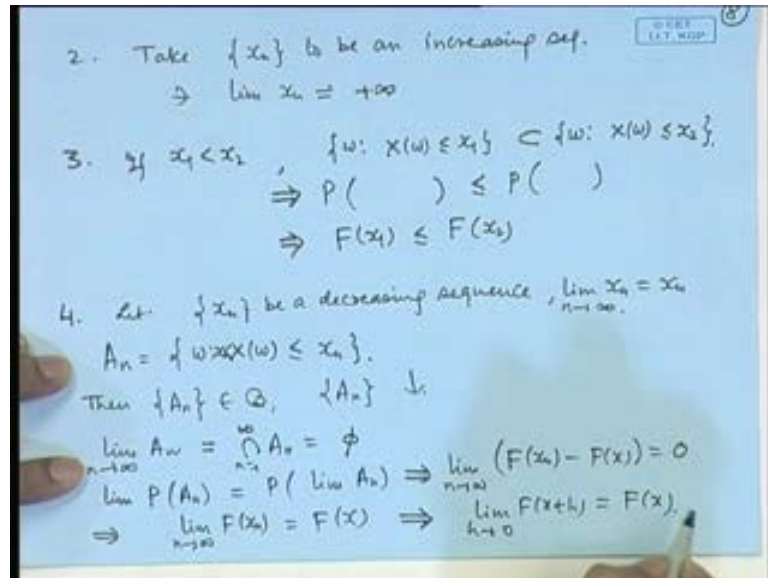 © CET
I.I.T. KGP
8
2. Take {xₙ} to be an increasing seq.
⇒ lim xₙ = +∞
3. If x₁ < x₂, {ω: X(ω) ≤ x₁} ⊂ {ω: X(ω) ≤ x₂}.
⇒ P( ) ≤ P( )
⇒ F(x₁) ≤ F(x₂)
4. Let {xₙ} be a decreasing sequence, lim n→∞ xₙ = xₙ
Aₙ = {ω: X(ω) ≤ xₙ}.
Then {Aₙ} ∈ 𝓑, {Aₙ} ↓.
lim n→∞ Aₙ = ∞ ∩ n=1 Aₙ = φ
lim P(Aₙ) = P(lim Aₙ) ⇒ lim n→∞ (F(xₙ) − F(x)) = 0
⇒ lim n→∞ F(xₙ) = F(x) ⇒ lim h→0 F(x+h) = F(x).